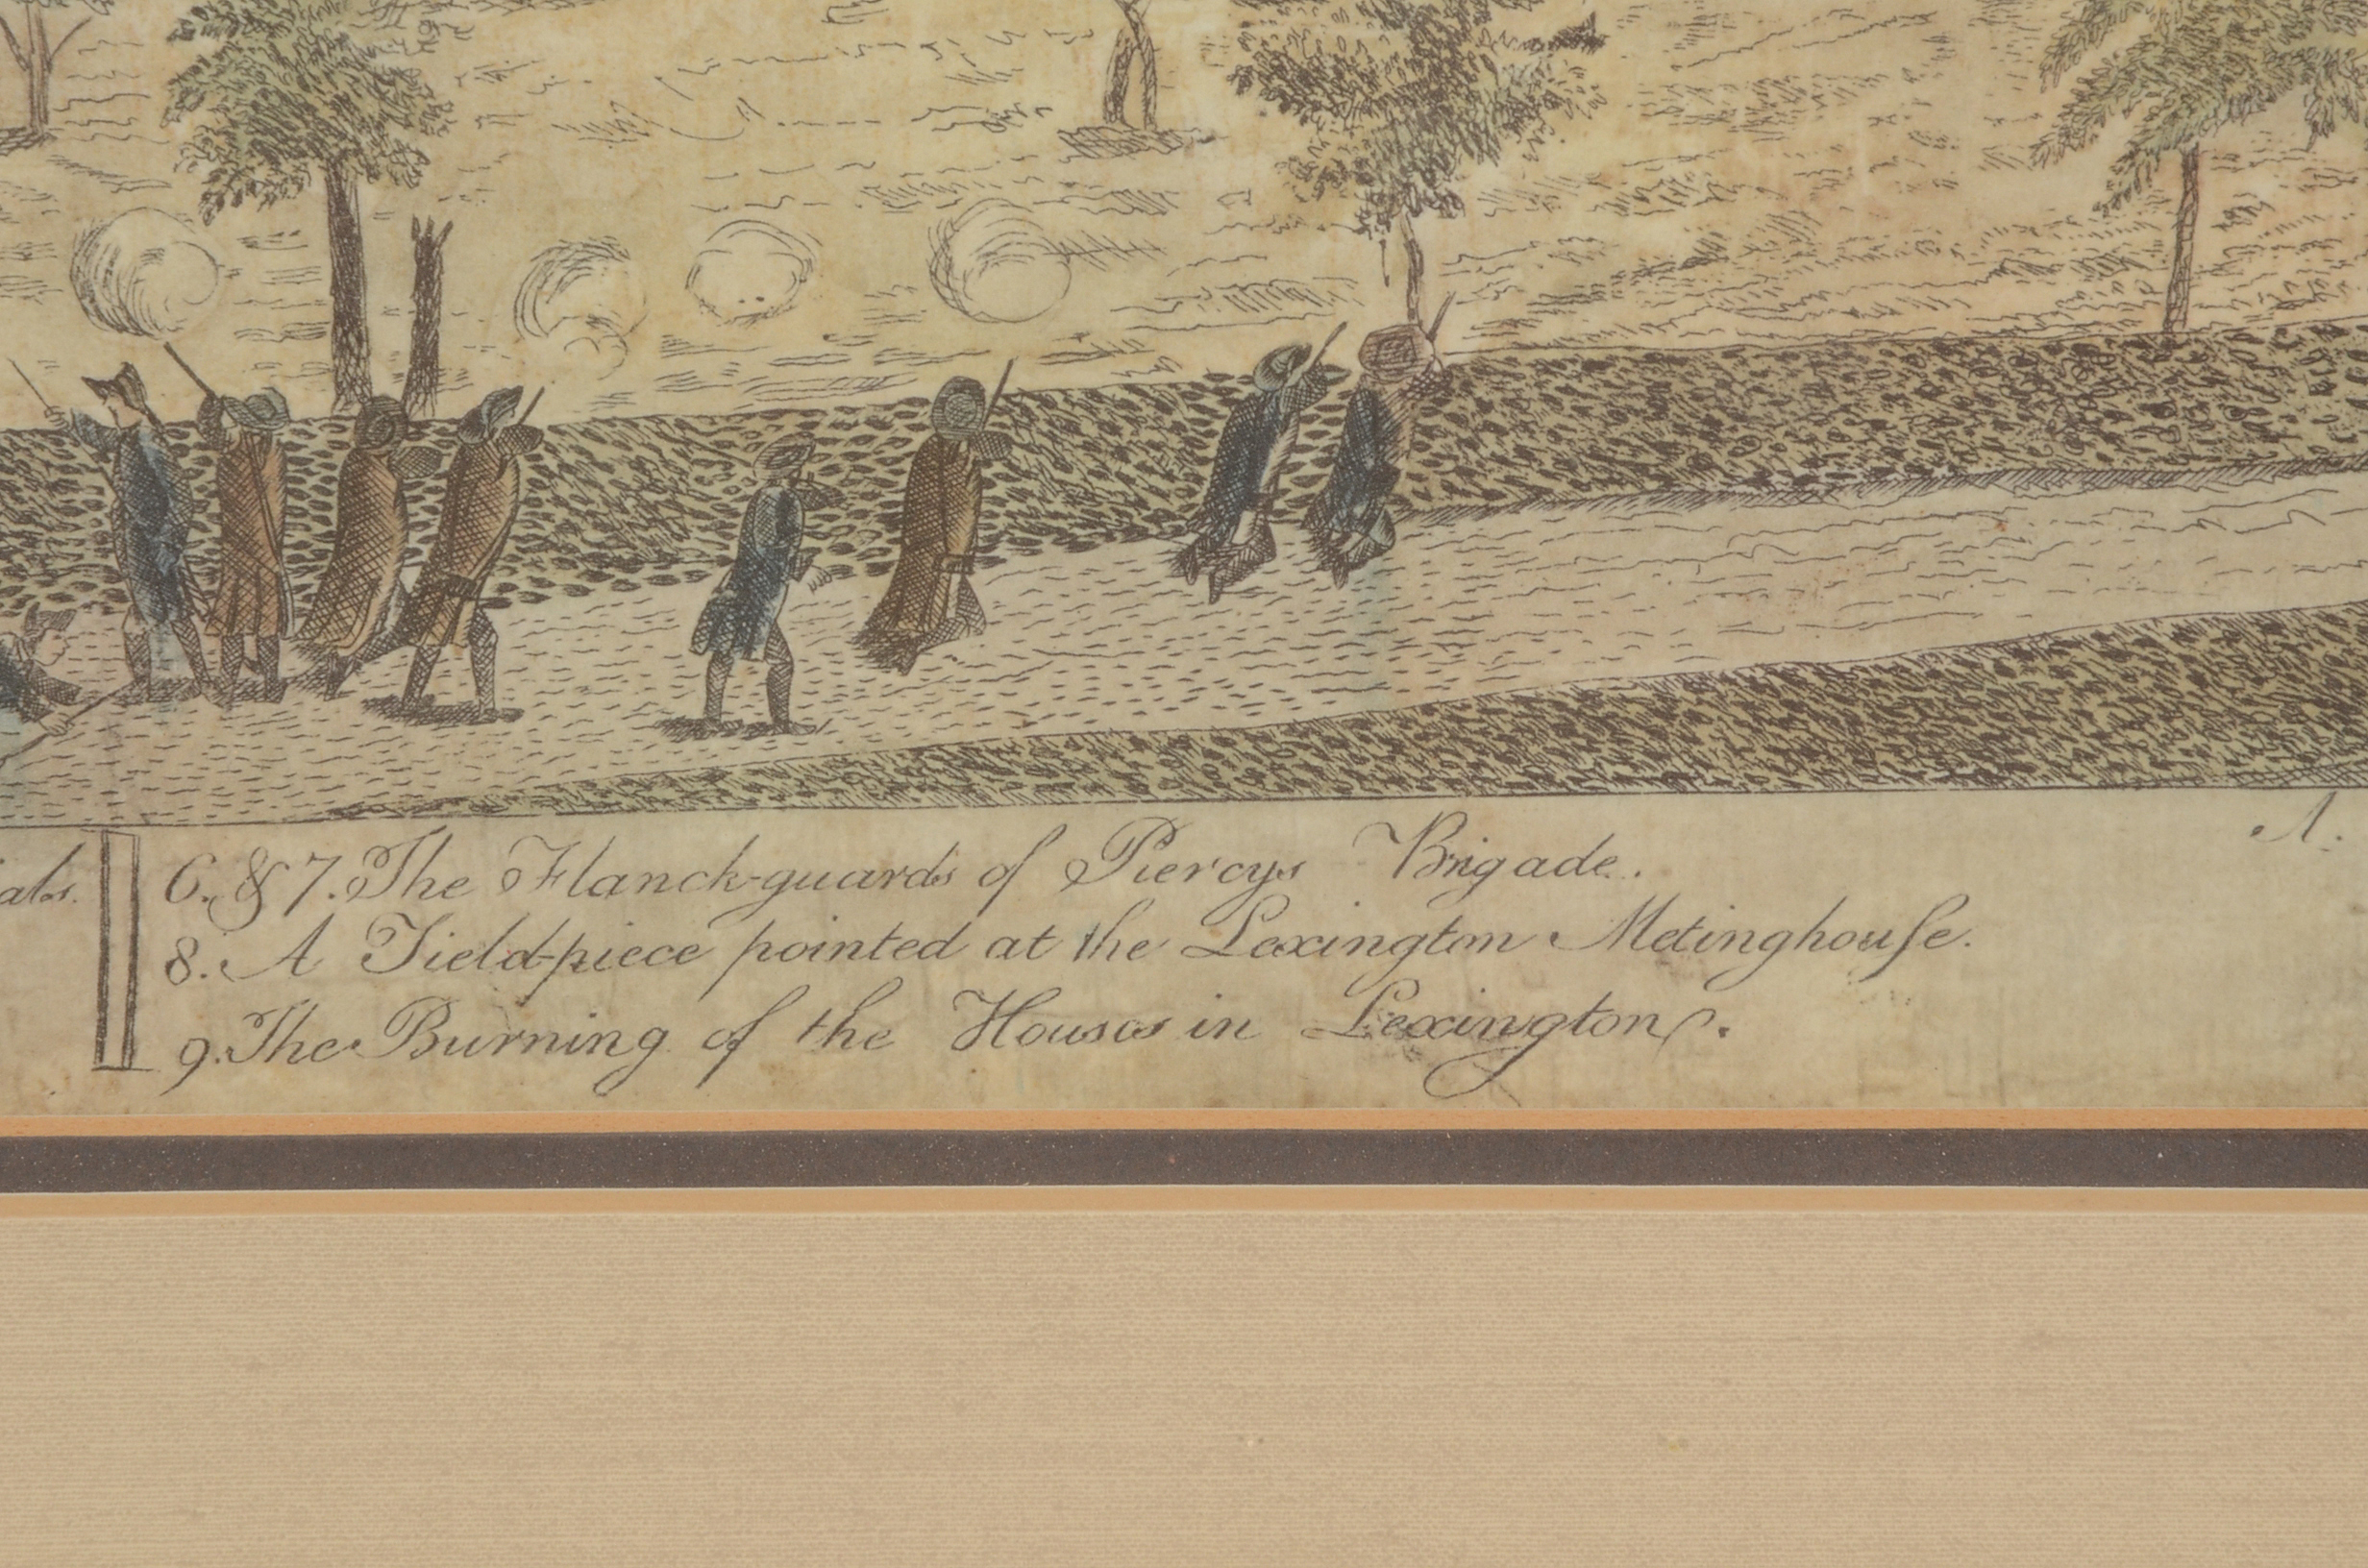 6. & 7. The Flanck-guards of Piercys Brigade.
8. A Field-piece pointed at the Lexington Metinghouſe.
9. The Burning of the Houses in Lexington.
A.